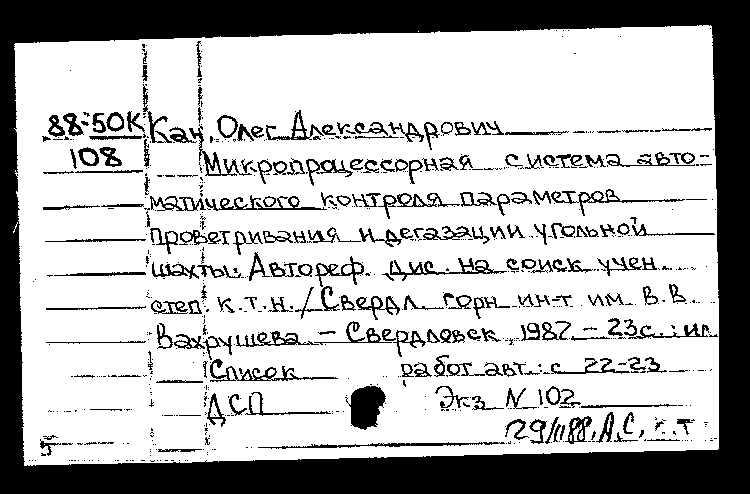 88-50К Кан, Олег Александрович
108 Микропроцессорная система авто-
матического контроля параметров
проветривания и дегазации угольной
шахты. Автореф. дис. на соиск учен.
степ. к.т.н. / Свердл. горн ин-т им В.В.
Вахрушева. - Свердловск, 1987. - 23с.: ил
Список работ авт.: с 22-23
ДСП Экз N 102
А,С, к.т